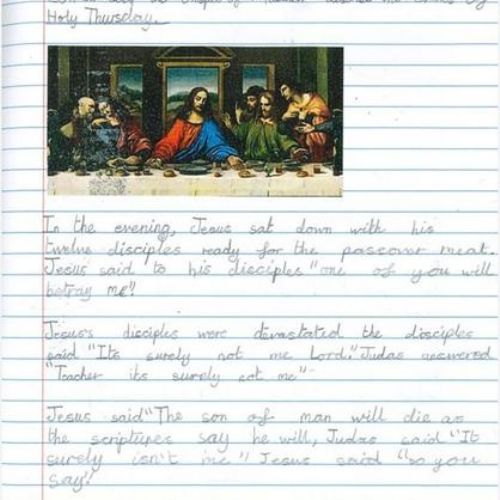 the Gospel of
Holy Thursday.
In the evening, Jesus sat down with his
twelve disciples ready for the passover meat.
Jesus said to his disciples "one of you will
betray me"?
Jesus's disciples were devastated the disciples
said "Its surely not me Lord." Judas answered
"Teacher its surely not me"
Jesus said "The son of man will die as
the scriptures say he will, Judas said "It
surely isn't me" Jesus said "so you
say".